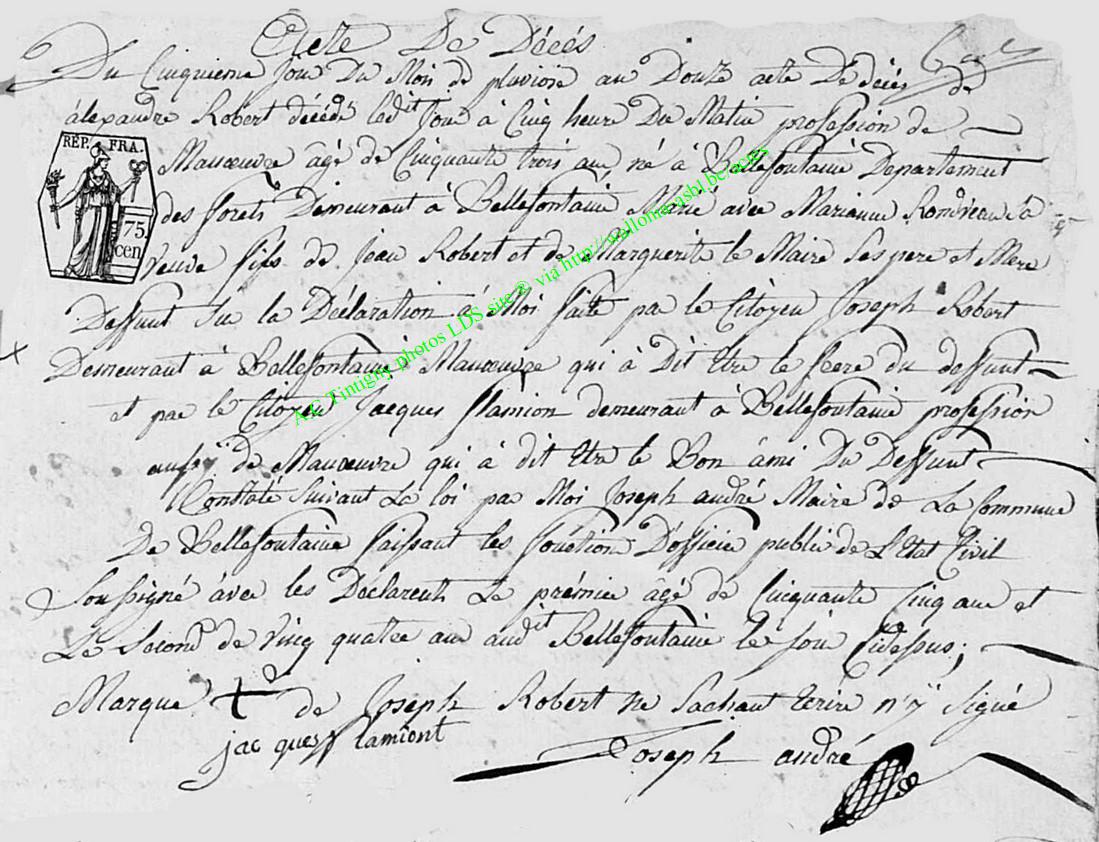 Acte De Décés
Du Cinquieme Jour Du Mois de pluviose an Douze acte De décés de
álexandre Robert décédé ledit Jour à Cinq heure Du Matin profession de
REP. FRA.
75 cen
Manoeuvre âgé de Cinquante trois an, né à Bellefontaine Departement
des forets Demeurant à Bellefontaine Marié avec Marianne Rondveau sa
veuve fils de Jean Robert et de Marguerite le Maire ses pere et Mere
Deffunt sur la Déclaration á Moi faite par le Citoyen Joseph Robert
Demeurant à Bellefontaine Manoeuvre qui à Dit Etre le frere du deffunt
et par le Citoyen Jacques flamion demeurant à Bellefontaine profession
aussy de Manoeuvre qui à dit Etre le Bon ámi Du Deffunt
Constaté suivant La loi par Moi Joseph andré Maire de La Commune
De Bellefontaine faissant les fonction D'officier public de L'Etat Civil
Soussigné ávec les Déclarents Le prémier âgé de Cincquante Cinq ans et
Le second de vingt quatre ans audit Bellefontaine le jour Cidessus;
Marque + de Joseph Robert ne Sachant Ecrire n'y Signé
jacques flamiont
Joseph andré
A.C Tintigny photos LDS site © via http://wallonia-asbl.be